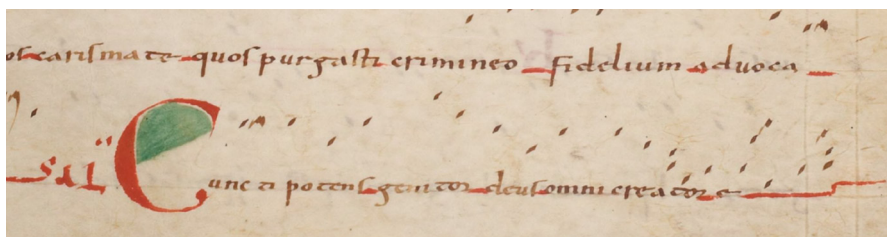 os carismate quos purgasti crimineo fidelium advoca
Sal Cuncti potens genitor deus omni creator e